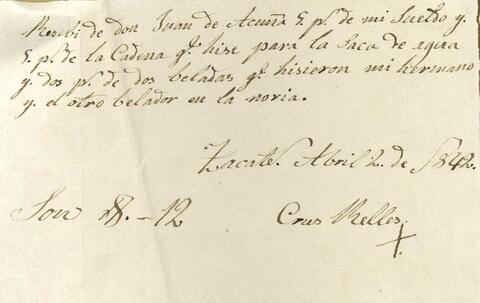 Resebi de don Juan de Acuña 5. p.s de mi Sueldo y
5. p.s de la Cadena q.e hise para la Saca de agua
y dos p.s de dos beladas q.e hisieron mi hermano
y el otro belador en la noria.
Zacate.s Abril 2. de 1842.
Son $. - 12
Crus Relles